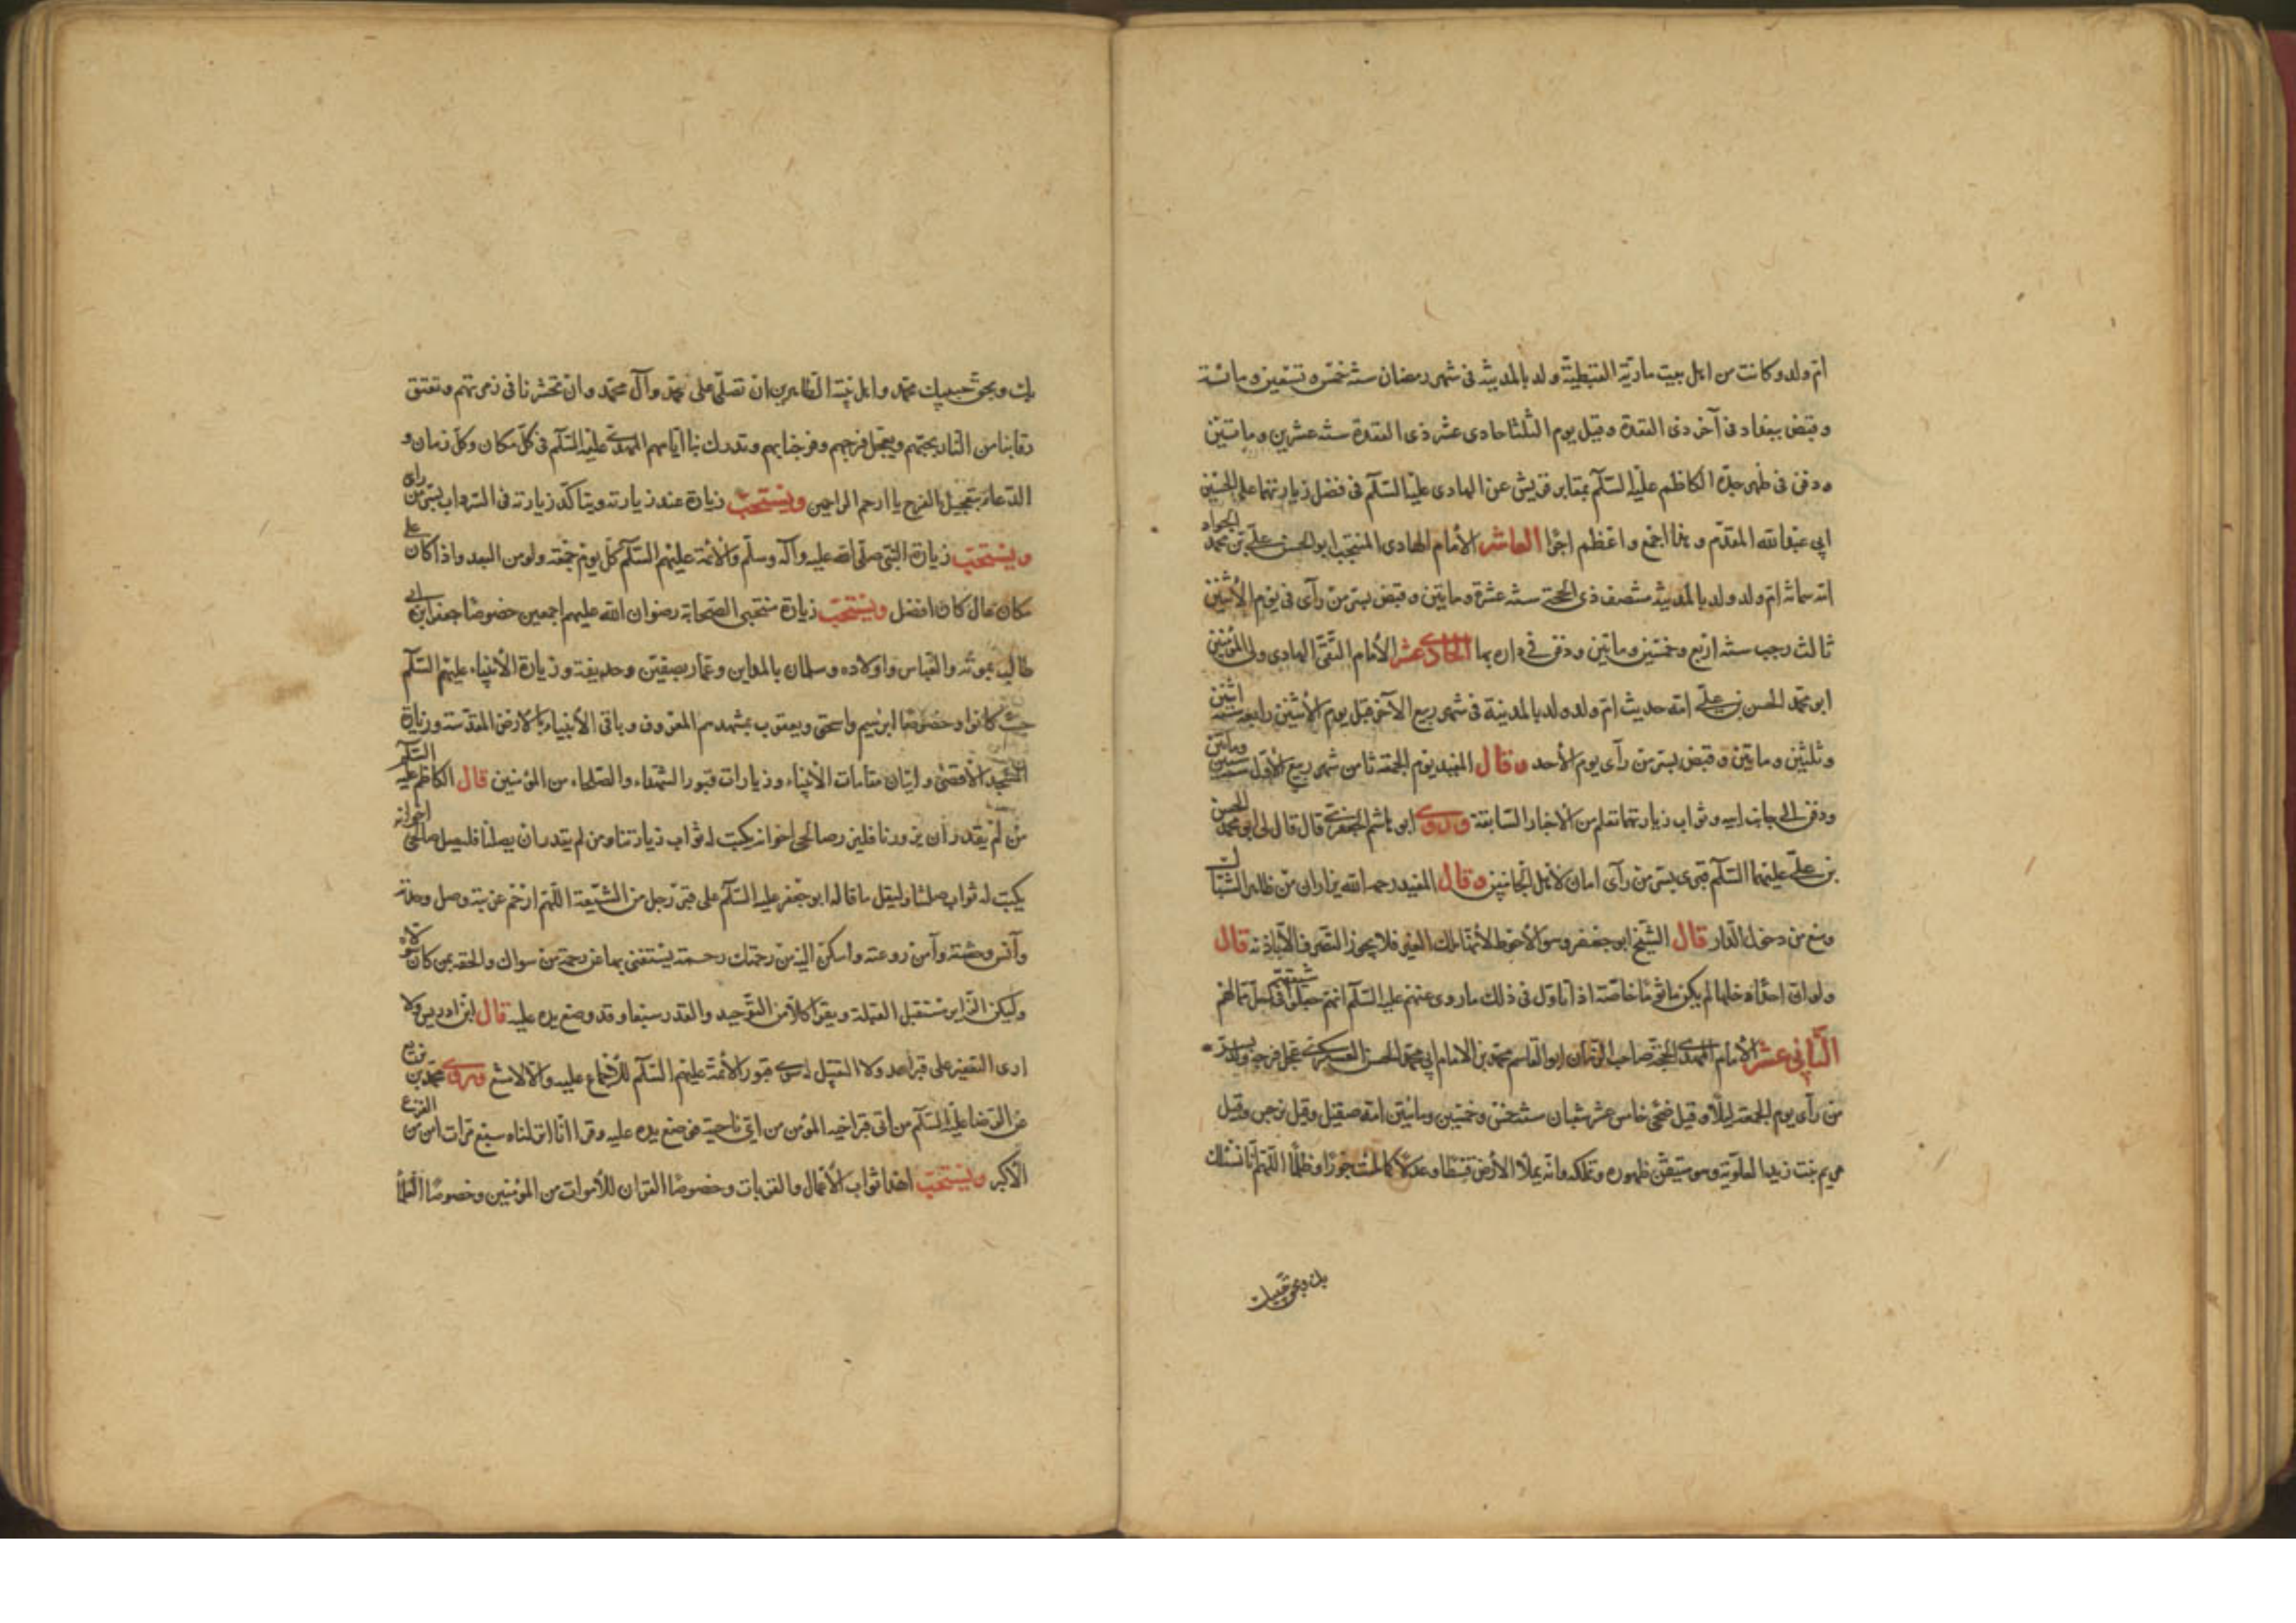 ام ولد وكانت من اهل بيت مارية القبطية ولد بالمدينة في شهر رمضان سنة خمس وتسعين ومائة
وقبض ببغداد في آخر ذى القعدة وقيل يوم الثلثا حادى عشر ذى القعدة سنة عشرين وماتين
ودفن في ظهر جده الكاظم عليه السلم بمقابر قريش عن الهادى عليه السلم في فضل زيارتهما على الحسين
ابي عبدالله المقدم وهذا اجمع واعظم اجرا العاشر الأمام الهادى المنتجب ابو الحسن على بن محمد الجواد
امه سمانه ام ولد ولد بالمدينة منتصف ذى الحجة سنة عشرة وماتين وقبض بسر من رآى في يوم الأثنين
ثالث رجب سنة اربع وخمسين وماتين ودفن في داره بها الحادي عشر الأمام التقي الهادى ولي المؤمنين
ابو محمد الحسن بن على امه حديث ام ولد ولد بالمدينة في شهر ربيع الآخر قيل يوم الأثنين رابعه سنة اثنين
وثلثين وماتين وقبض بسر من رآى يوم الأحد وقال المفيد يوم الجمعة ثامن شهر ربيع الأول سنة ستين وماتين
ودفن الى جانب ابيه وثواب زيارتهما تعلم من الأخبار السابقة وروى ابو هاشم الجعفرى قال قال لى ابو محمد الحسن
بن على عليهما السلم قبرى بسر من رآى امان لأهل الجانبين وقال المفيد رحمه الله يزاران من ظاهر الشباك
ومنع من دخول الدار قال الشيخ ابو جعفر وهو الأحوط لأنها ملك الغير فلا يجوز التصرف الا باذنه قال
ولو ان احدًا دخلها لم يكن ماثومًا خاصة اذا تاول في ذلك ما روى عنهم عليه السلم انهم جعلوا شيعتهم في حل من مالهم
الثاني عشر الأمام المهدى الحجة صاحب الزمان ابو القاسم محمد بن الامام ابي محمد الحسن العسكرى عجل فرجه ولد بسر
من رآى يوم الجمعة ليلًا وقيل ضحى خامس عشر شعبان سنة خمس وخمسين وماتين امه صقيل وقيل نرجس وقيل
مريم بنت زيد العلوية وهو متيقن ظهوره وتملكه وانه يملا الأرض قسطًا وعدلًا كما ملئت جورًا وظلمًا اللهم انا نسئلك
بك وبحق حبيبك
بك وبحق حبيبك محمد واهل بيته الطاهرين ان تصلى على محمد وآل محمد وان تحشرنا في زمرتهم وتعتق
رقابنا من النار بحبهم وتعجل فرجهم وفرجنا بهم وتدرك بنا ايامهم المهدى عليه السلم في كل مكان وكل زمان و
الدعاء بتعجيل الفرج يا ارحم الراحمين ويستحب زيارة عند زيارته ويتاكد زيارته في السرداب بسر من راى
ويستحب زيارة النبي صلى الله عليه وآله وسلم والأئمة عليهم السلم كل يوم جمعة ولو من البعد واذا كان على
مكان عال كان افضل ويستحب زيارة منتجبي الصحابة رضوان الله عليهم اجمعين خصوصًا جعفر ابن ابي
طالب بموته والعباس واولاده وسلمان بالمداين وعمار بصفين وحذيفة وزيارة الأنبياء عليهم السلم
حيث كانوا وخصوصًا ابرهيم واسحق ويعقوب بمشهدهم المعروف وباقي الأنبياء بالأرض المقدسة وزيارة
المسجد الأقصى واتيان مقامات الأنبياء وزيارات قبور الشهداء والصلحاء من المؤمنين قال الكاظم عليه السلم
من لم يقدر ان يزورنا فليزر صالحى اخوانه يكتب له ثواب زيارتنا ومن لم يقدر ان يصلنا فليصل صالحى اخوانه
يكتب له ثواب صلتنا وليقل ما قاله ابو جعفر عليه السلم على قبر رجل من الشيعة اللهم ارحم غربته وصل وحدته
وآنس وحشته وآمن روعته واسكن اليه من رحمتك رحمة يستغنى بها عن رحمة من سواك والحقه بمن كان يتولاه
وليكن الزاير مستقبل القبلة ويقرا كلا من التوحيد والقدر سبعا وقد وضع يده عليه قال ابن ادريس ولا
ارى التعفير على قبر احد ولا التقبيل له سوى قبور الأئمة عليهم السلم للأجماع عليه والا لامتنع وروى محمد بن بزيع
عن الرضا عليه السلم من اتى قبر اخيه المؤمن من اى ناحية فوضع يده عليه وقرا انا انزلناه سبع مرات امن من الفزع
الأكبر ويستحب اهدا ثواب الأعمال والقربات وخصوصًا القران للأموات من المؤمنين وخصوصًا العلما